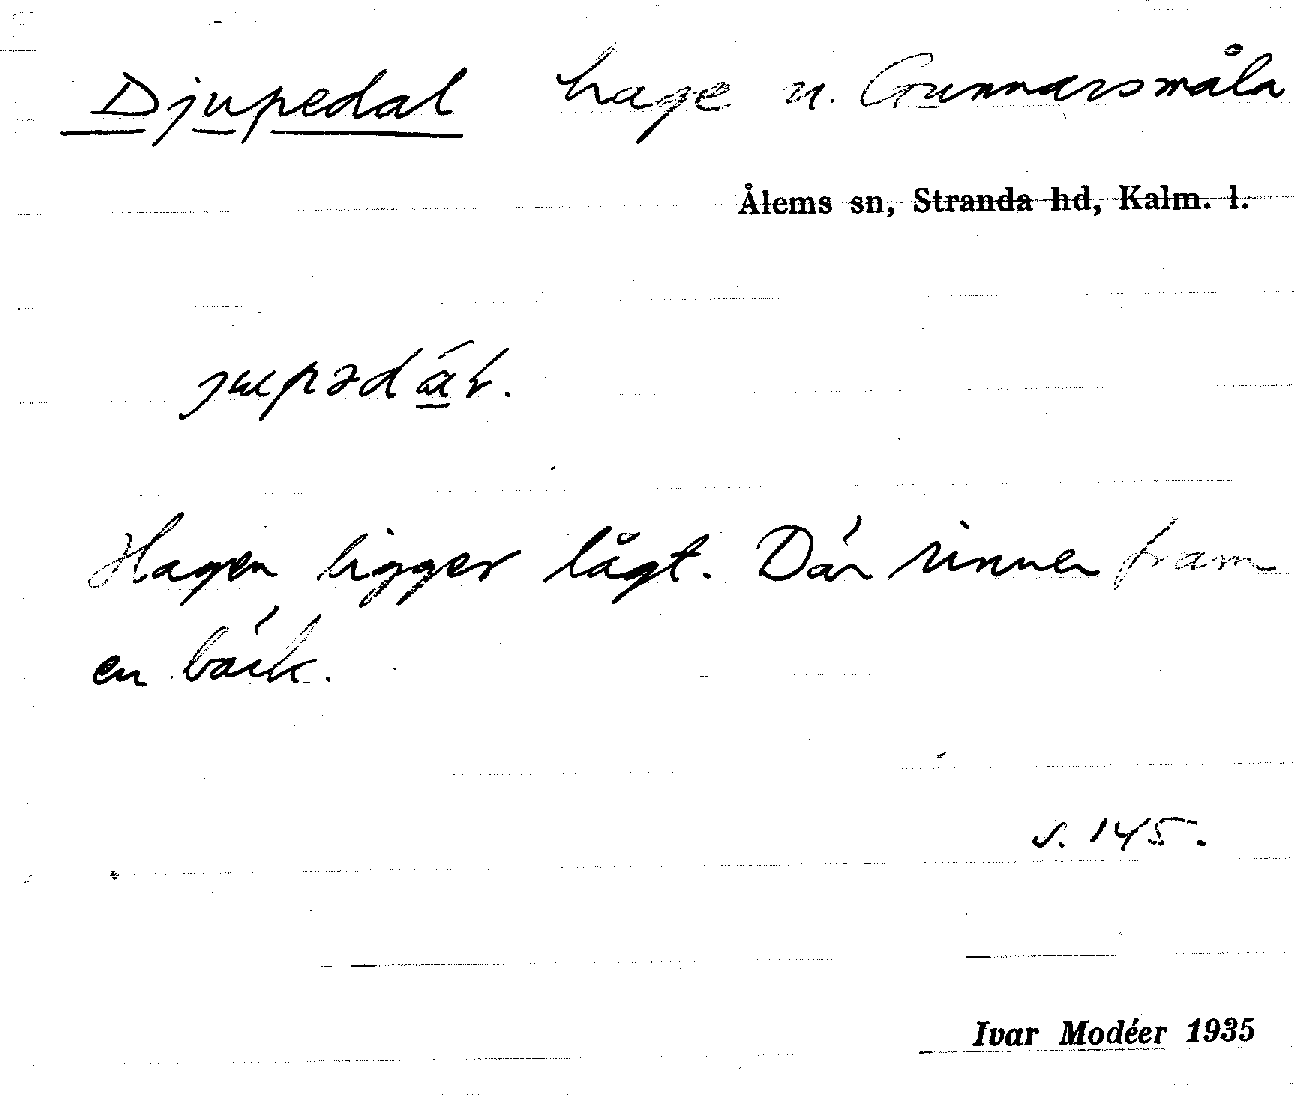 Djupedal hage u. Gunnarsmåla
Ålems sn, Stranda hd, Kalm. l.
Hagen ligger lågt. Där rinner fram
en bäck.
s. 145.
Ivar Modéer 1935